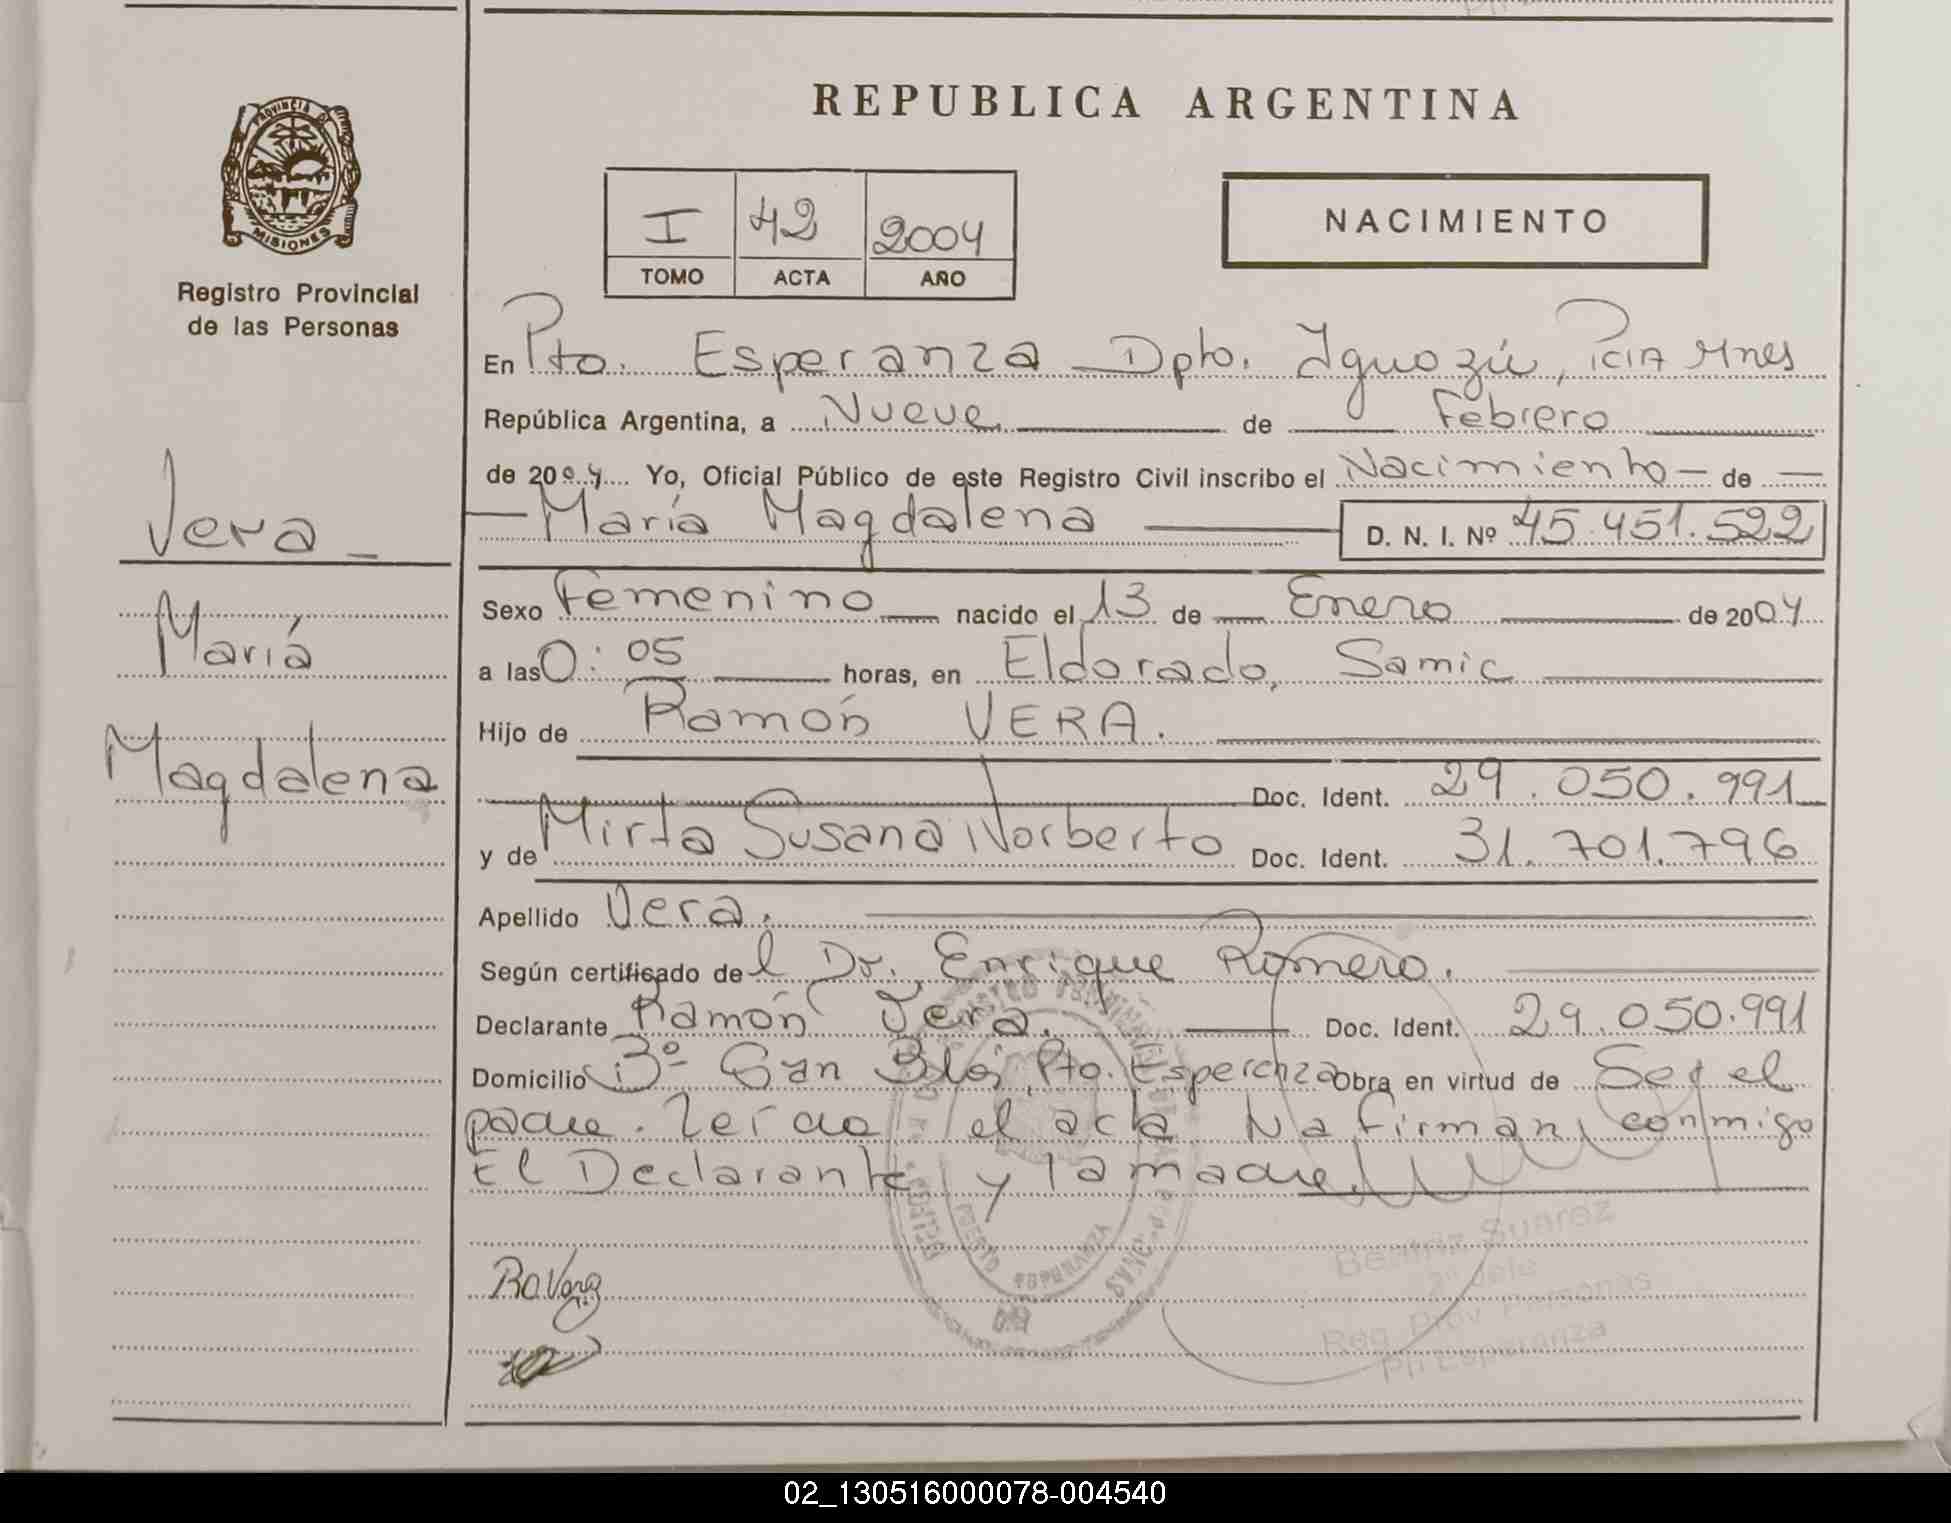 PROVINCIA DE
MISIONES
Registro Provincial
de las Personas
Vera
María
Magdalena
REPUBLICA ARGENTINA
I 42 2004
TOMO ACTA AÑO
NACIMIENTO
En Pto. Esperanza Dpto. Iguazú, Pcia Mnes
República Argentina, a Nueve de Febrero
de 2004 Yo, Oficial Público de este Registro Civil inscribo el Nacimiento de
María Magdalena D. N. I. Nº 45.451.522
Sexo Femenino nacido el 13 de Enero de 2004
a las 0:05 horas, en Eldorado, Samic
Hijo de Ramón VERA.
Doc. Ident. 29.050.991
y de Mirta Susana Norberto Doc. Ident. 31.701.796
Apellido Vera.
Según certificado del Dr. Enrique Romero.
Declarante Ramón Vera. Doc. Ident. 29.050.991
Domicilio Bº Gran Pto. Esperanza Obra en virtud de Ser el
padre. Leída el acta La firman conmigo
El Declarante y la madre.
PUERTO ESPERANZA
Beatriz Suarez
2º Jefe
Reg. Prov. Personas
Pto Esperanza
02_130516000078-004540